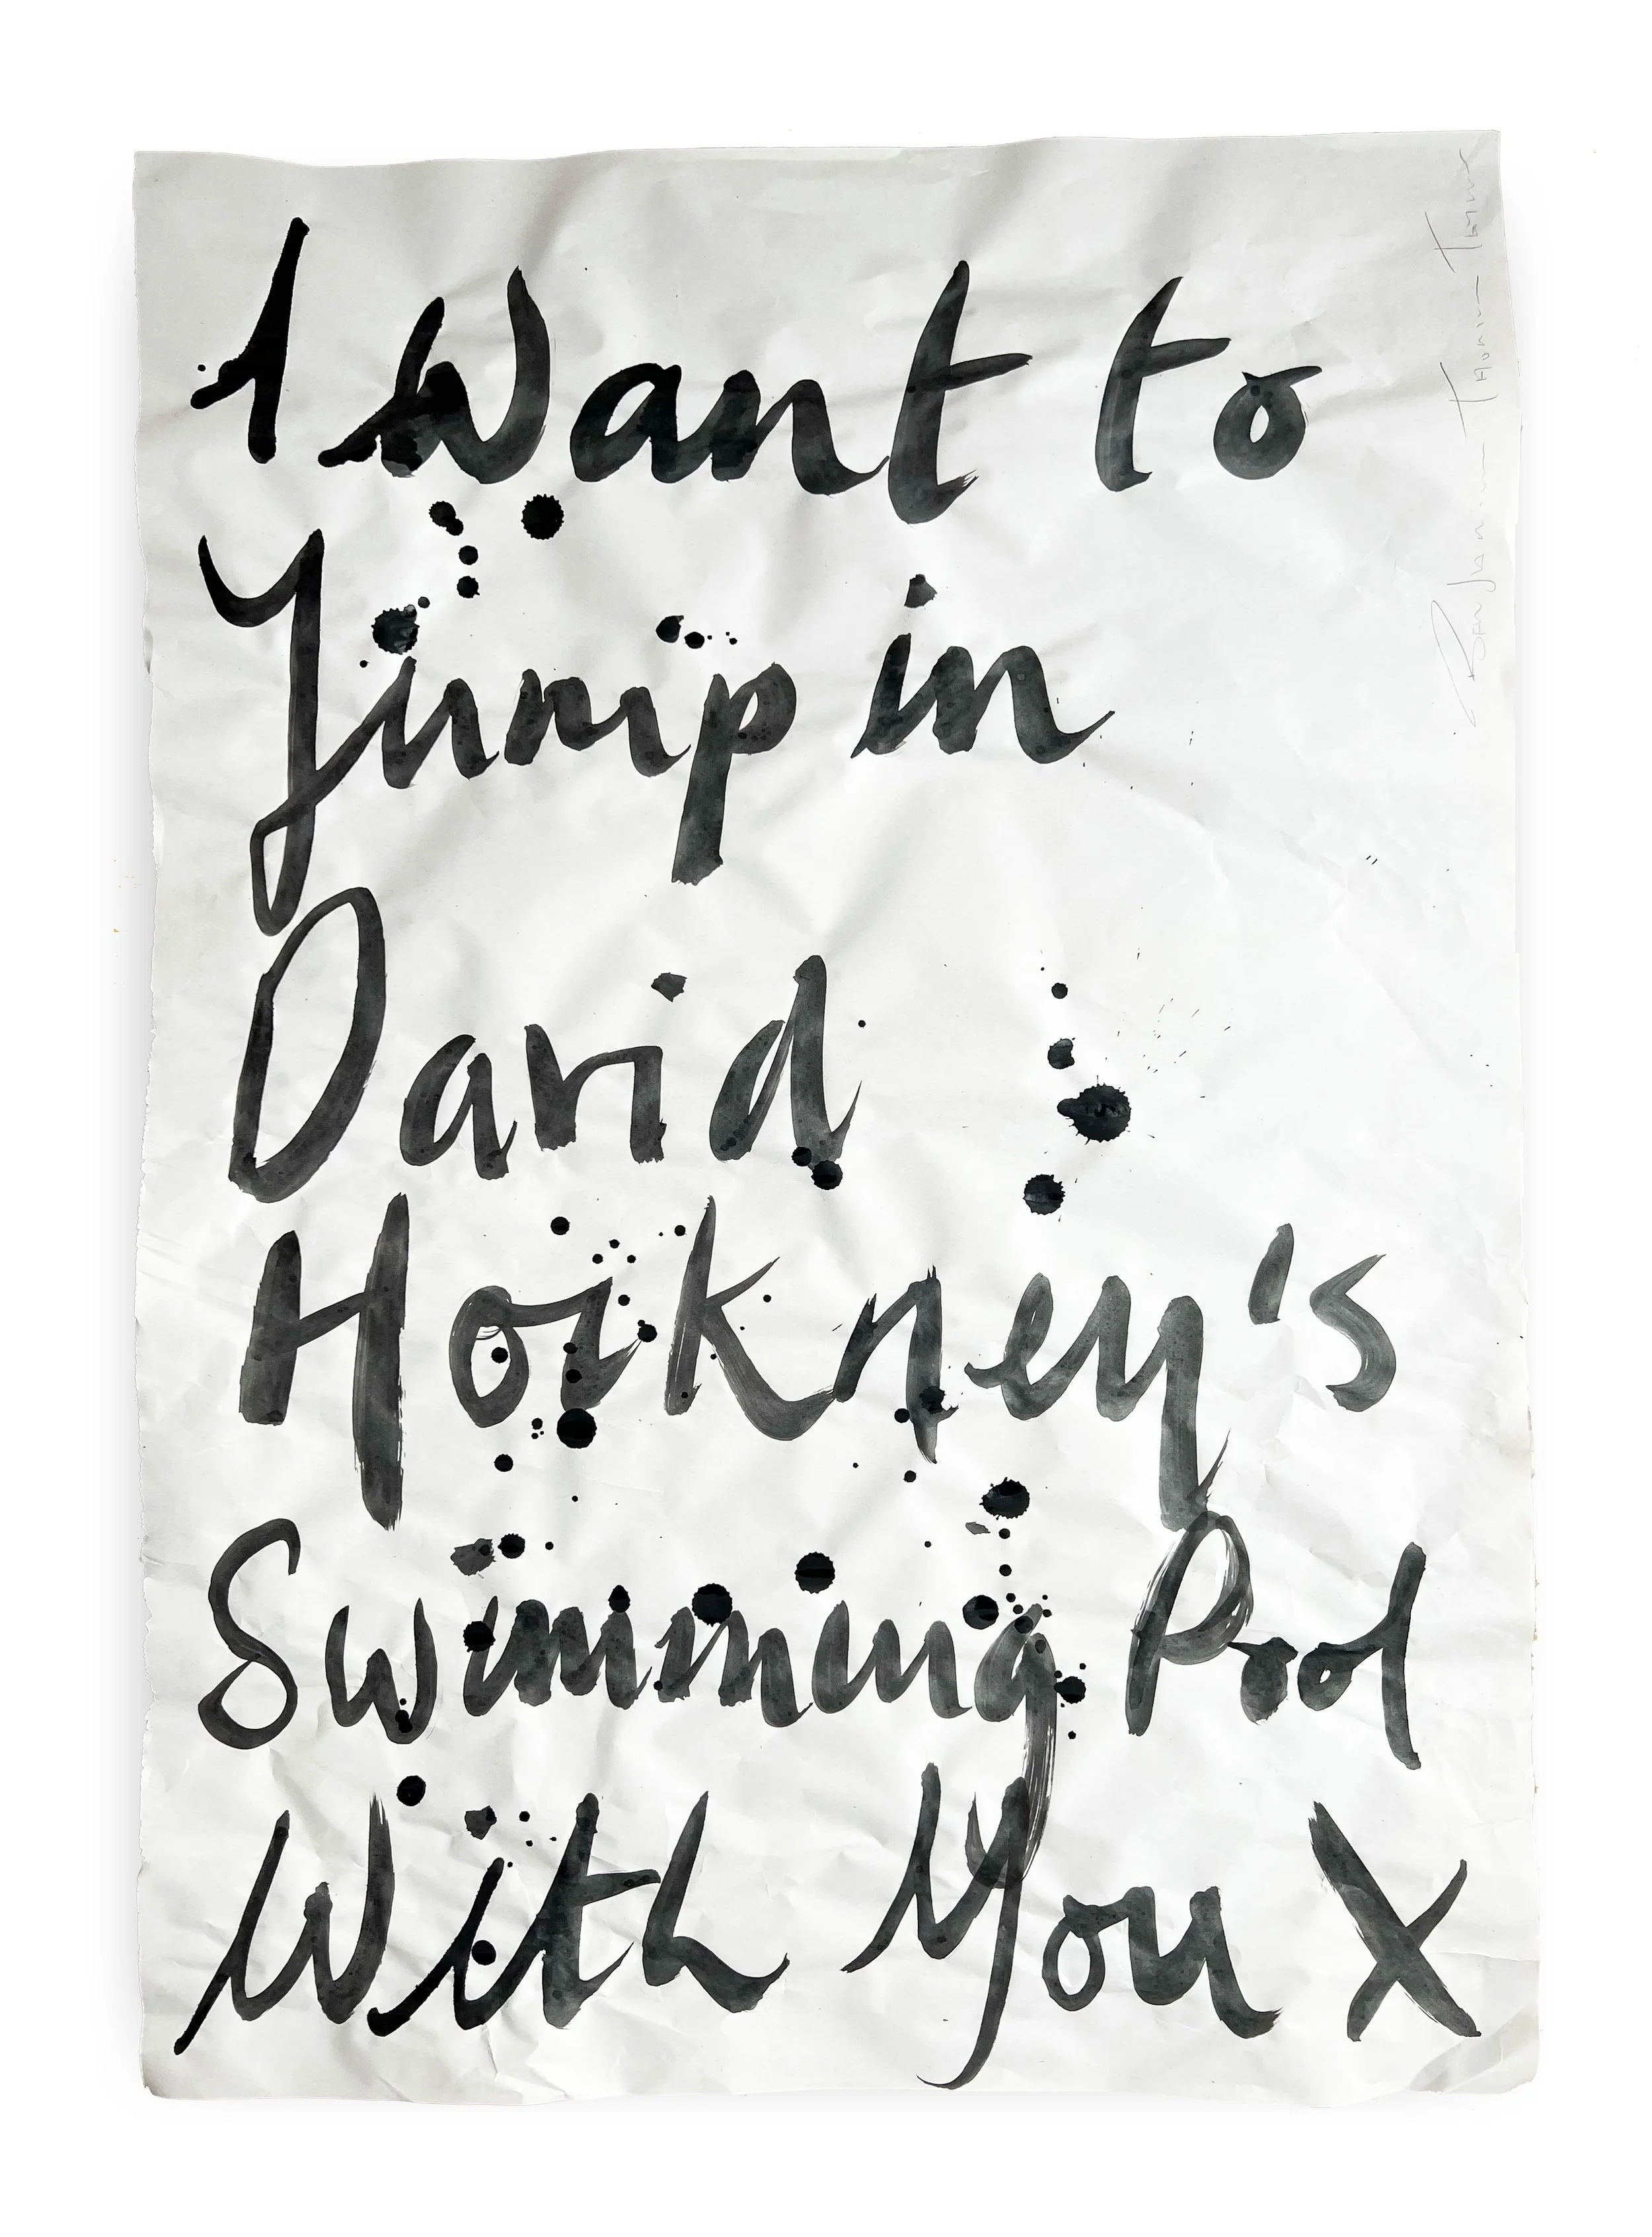 I Want to
Jump in
David
Hockney's
Swimming Pool
With You X
Benjamin Thomas Taylor